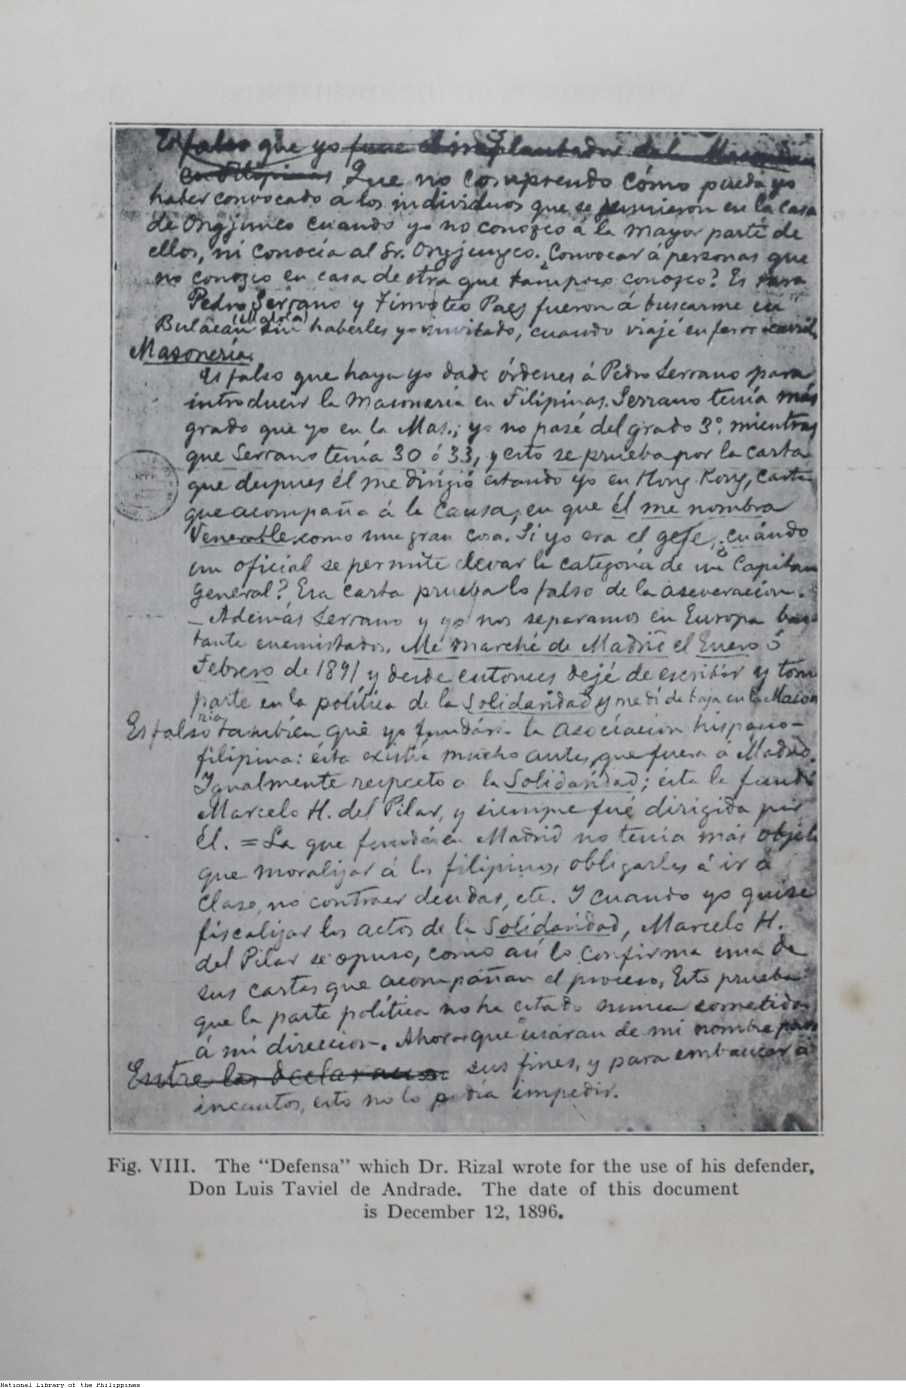 Es falso que yo fuese el implantador de la Masonería
en Filipinas Que no comprendo cómo pueda yo
haber convocado a los individuos que se reunieron en la casa
de Ongjunco cuando yo no conozco á la mayor parte de
ellos, ni conocía al Sr. Ongjungco. ¿Convocar á personas que
no conozco en casa de otra que tampoco conozco? Es
Pedro Serrano y Timoteo Paez fueron á buscarme en
Bulacan (Malolos) sin haberles yo invitado, cuando viajé en ferrocarril
Masonería.
Es falso que haya yo dado órdenes á Pedro Serrano para
introducir la Masonería en Filipinas. Serrano tenía más
grado que yo en la Mas.; yo no pasé del grado 3º, mientras
que Serrano tenía 30 ó 33, y esto se prueba por la carta
que despues él me dirigió estando yo en Hong-Kong, carta
que acompaña á la Causa, en que él me nombra
Venerable, como una gran cosa. Si yo era el gefe, ¿cuándo
un oficial se permite elevar la categoría de un Capitan
General? Esa carta prueba lo falso de la aseveracion.
— Además Serrano y yo nos separamos en Europa bas-
tante enemistados. Me marché de Madrid el Enero ó
Febrero de 1891 y desde entonces dejé de escribir y tomar
parte en la política de la Solidaridad y me dí de baja en la Mason
ería
Es falso también que yo fundára la asociacion hispano-
filipina: ésta existía mucho antes que fuera á Madrid.
Igualmente respecto a la Solidaridad; esta la fundó
Marcelo H. del Pilar, y siempre fué dirigida por
él. = La que fundé en Madrid no tenía más objeto
que moralizar á los filipinos, obligarles á ir á
clase, no contraer deudas, etc. Y cuando yo quise
fiscalizar los actos de la Solidaridad, Marcelo H.
del Pilar se opuso, como así lo confirma una de
sus cartas que acompañan el proceso, Esto prueba
que la parte política no ha estado nunca sometida
á mi direccion. Ahora que usáran de mi nombre para
Entre las declaraciones sus fines, y para embaucar á
incautos, esto no lo podía impedir.
Fig. VIII. The "Defensa" which Dr. Rizal wrote for the use of his defender,
Don Luis Taviel de Andrade. The date of this document
is December 12, 1896.
National Library of the Philippines